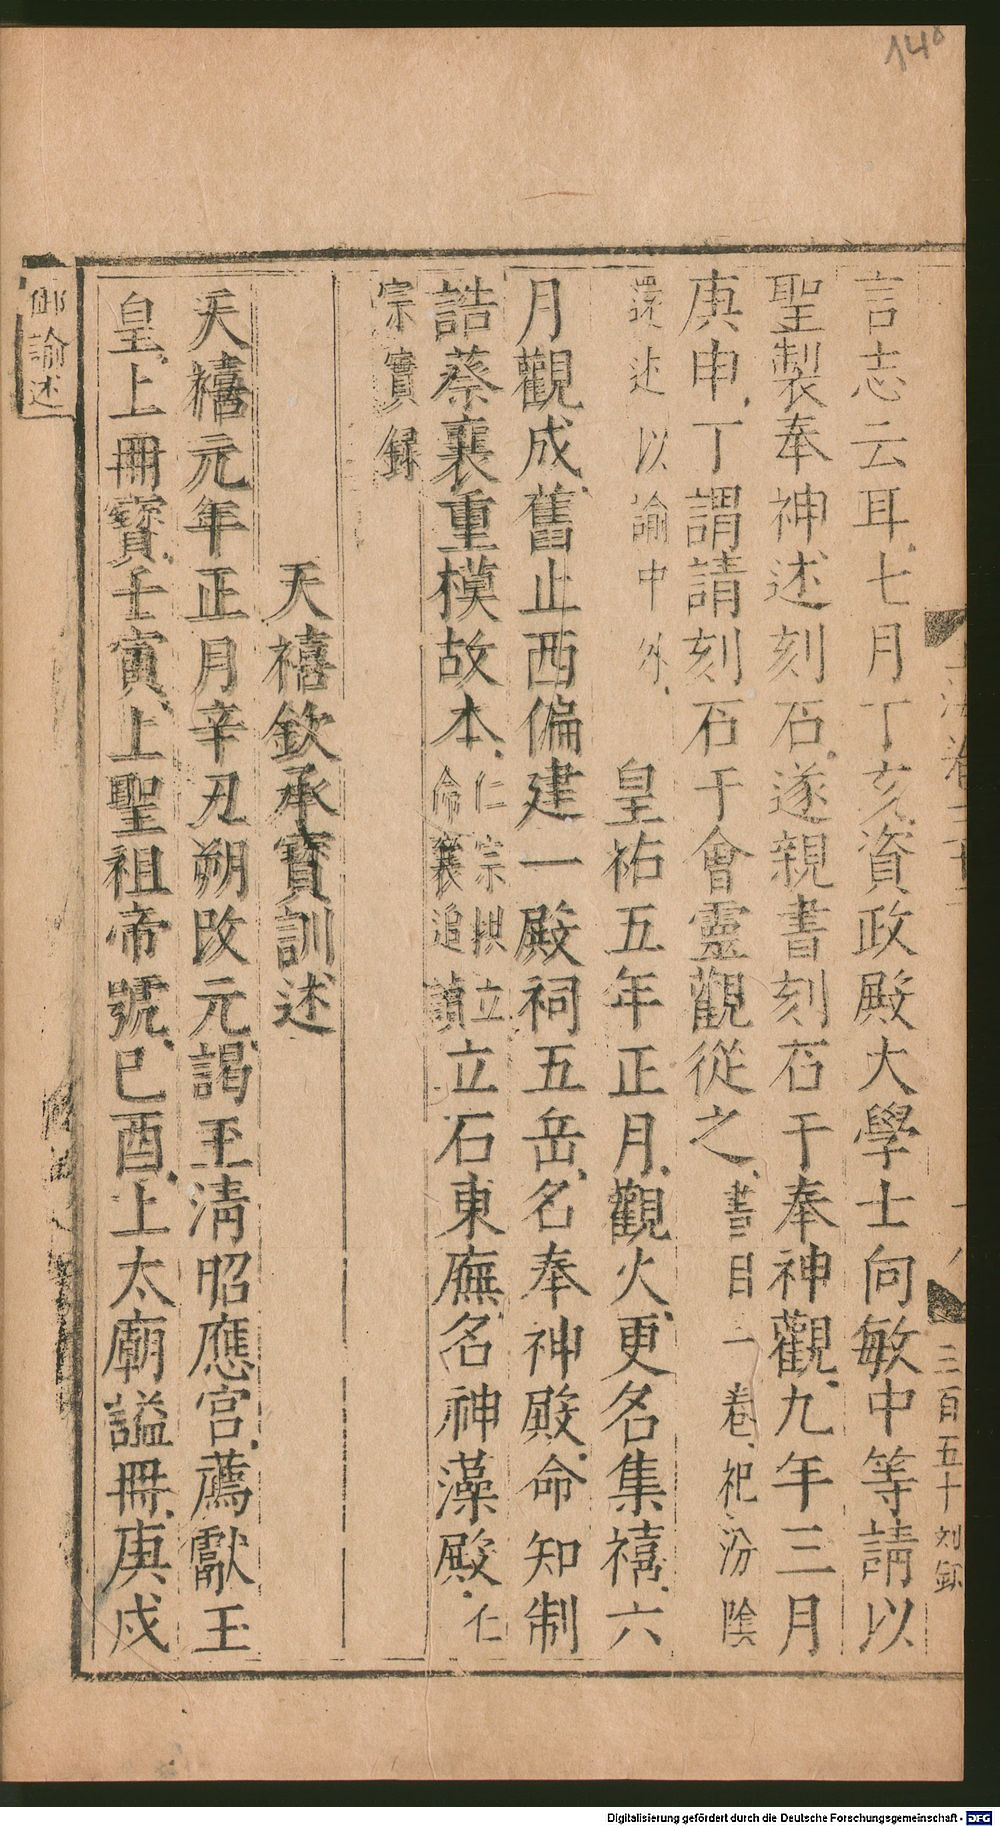 言志云耳七月丁亥資政殿大學士向敏中等請以
聖製奉神述刻石遂親書刻石于奉神觀九年三月
庚申丁謂請刻石于會靈觀從之書目一卷祀汾陰
還述以諭中外皇祐五年正月觀火更名集禧六
月觀成舊止西偏建一殿祠五岳名奉神殿命知制
誥蔡襄重模故本仁宗拱立命襄追讀立石東廡名神藻殿仁
宗實録
天禧欽承寶訓述
天禧元年正月辛丑朔改元謁玉清昭應宮薦獻玉
皇上冊寶壬寅上聖祖帝號己酉上太廟謚冊庚戌
御諭述
三百五十
148
Digitalisierung gefördert durch die Deutsche Forschungsgemeinschaft - DFG